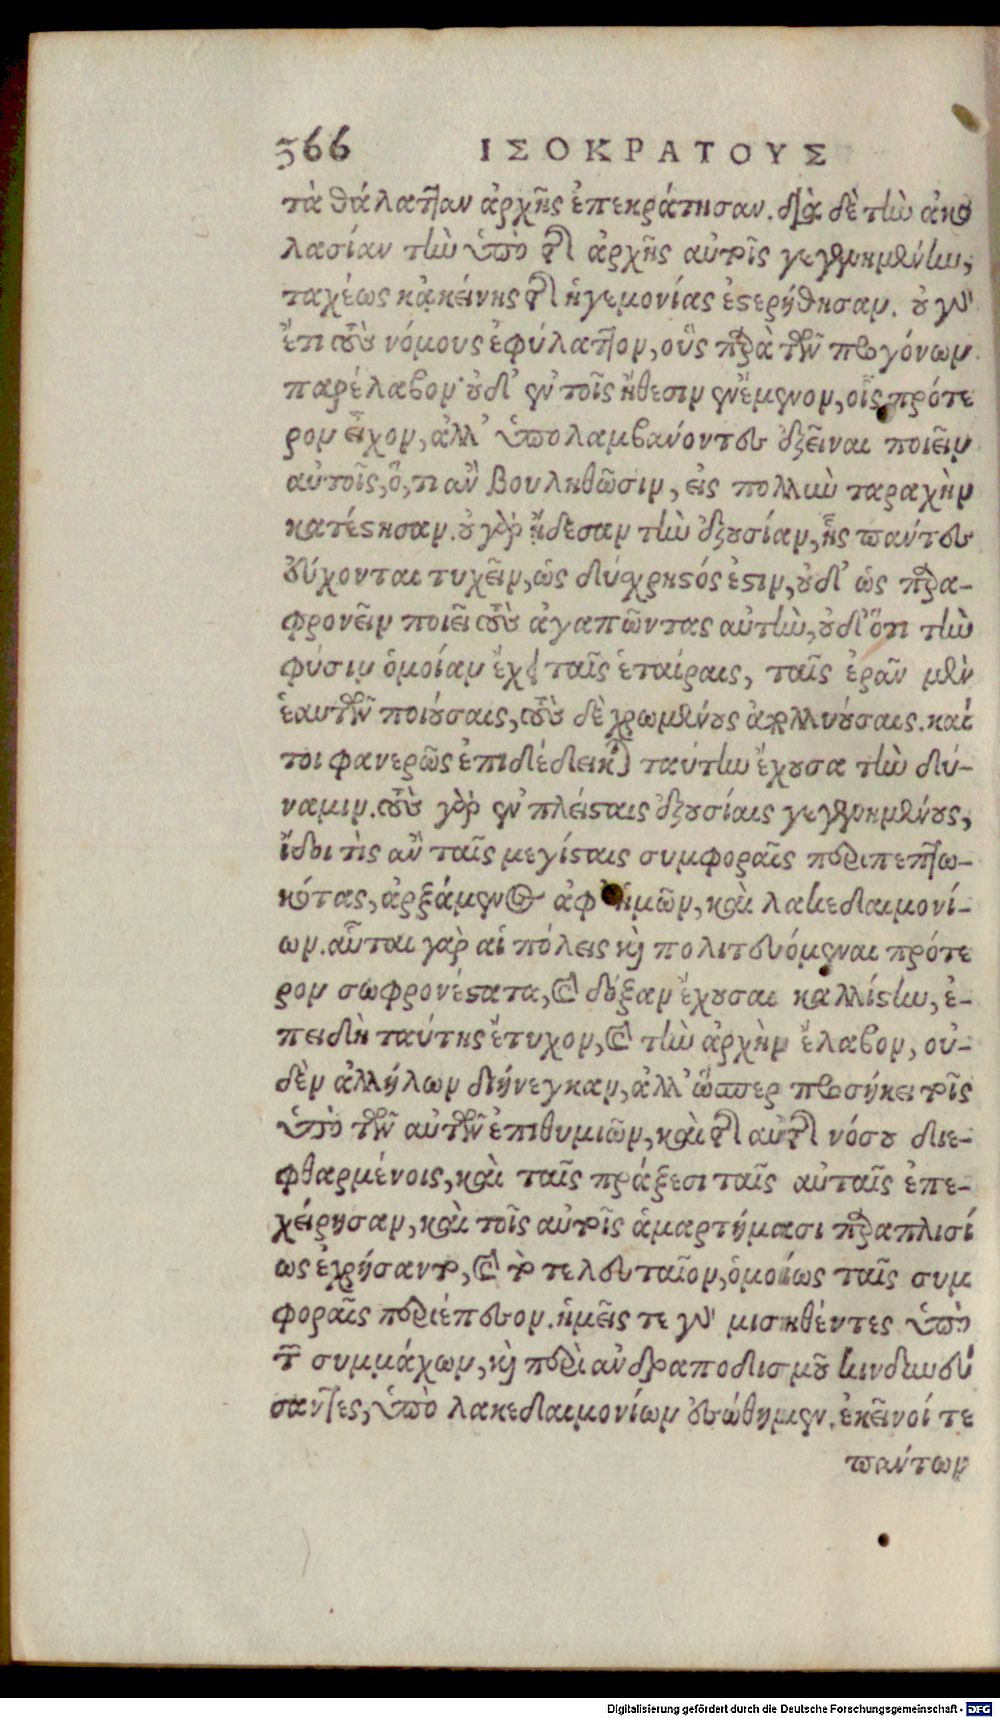 566 ΙΣΟΚΡΑΤΟΥΣ
τὰ θάλατταν ἀρχῆς ἐπεκράτησαν. διὰ δὲ τὴν ἀκο
λασίαν τὴν ὑπὸ τῆς ἀρχῆς αὐτοῖς γεγενημένην,
ταχέως κἀκείνης τῆς ἡγεμονίας ἐστερήθησαν. οὐ γὰρ
ἔτι τοὺς νόμους ἐφύλαττον, οὓς παρὰ τῶν προγόνων
παρέλαβον· οὐδ' ἐν τοῖς ἤθεσιν ἐνέμενον, οἷς πρότε
ρον εἶχον, ἀλλ' ὑπολαμβάνοντες ἐξεῖναι ποιεῖν
αὐτοῖς, ὅ, τι ἂν βουληθῶσιν, εἰς πολλὴν ταραχὴν
κατέστησαν. οὐ γὰρ ᾔδεσαν τὴν ἐξουσίαν, ἧς πάντες
εὔχονται τυχεῖν, ὡς δύσχρηστός ἐστιν, οὐδ' ὡς παρα-
φρονεῖν ποιεῖ τοὺς ἀγαπῶντας αὐτὴν, οὐδ' ὅτι τὴν
φύσιν ὁμοίαν ἔχει ταῖς ἑταίραις, ταῖς ἐρᾶν μὲν
ἑαυτῶν ποιούσαις, τοὺς δὲ χρωμένους ἀπολλυούσαις. καί
τοι φανερῶς ἐπιδέδεικται ταύτην ἔχουσα τὴν δύ-
ναμιν. τοὺς γὰρ ἐν πλείσταις ἐξουσίαις γεγενημένους,
ἴδοι τὶς ἂν ταῖς μεγίσταις συμφοραῖς περιπεπτω-
κότας, ἀρξάμενος ἀφ' ἡμῶν, καὶ λακεδαιμονί-
ων. αὗται γὰρ αἱ πόλεις καὶ πολιτευόμεναι πρότε
ρον σωφρονέστατα, καὶ δόξαν ἔχουσαι καλλίστην, ἐ-
πειδὴ ταύτης ἔτυχον, καὶ τὴν ἀρχὴν ἔλαβον, οὐ-
δὲν ἀλλήλων διήνεγκαν, ἀλλ' ὥσπερ προσήκει τοῖς
ὑπὸ τῶν αὐτῶν ἐπιθυμιῶν, καὶ τῆς αὐτῆς νόσου διε-
φθαρμένοις, καὶ ταῖς πράξεσι ταῖς αὐταῖς ἐπε-
χείρησαν, καὶ τοῖς αὐτοῖς ἁμαρτήμασι παραπλισί
ως ἐχρήσαντο, καὶ τὸ τελευταῖον, ὁμοίως ταῖς συμ
φοραῖς περιέπεσον. ἡμεῖς τε γὰρ μισηθέντες ὑπὸ
τῶν συμμάχων, καὶ περὶ ἀνδραποδισμοῦ κινδυνεύ
σαντες, ὑπὸ λακεδαιμονίων ἐσώθημεν. ἐκεῖνοί τε
πάντων
Digitalisierung gefördert durch die Deutsche Forschungsgemeinschaft - DFG